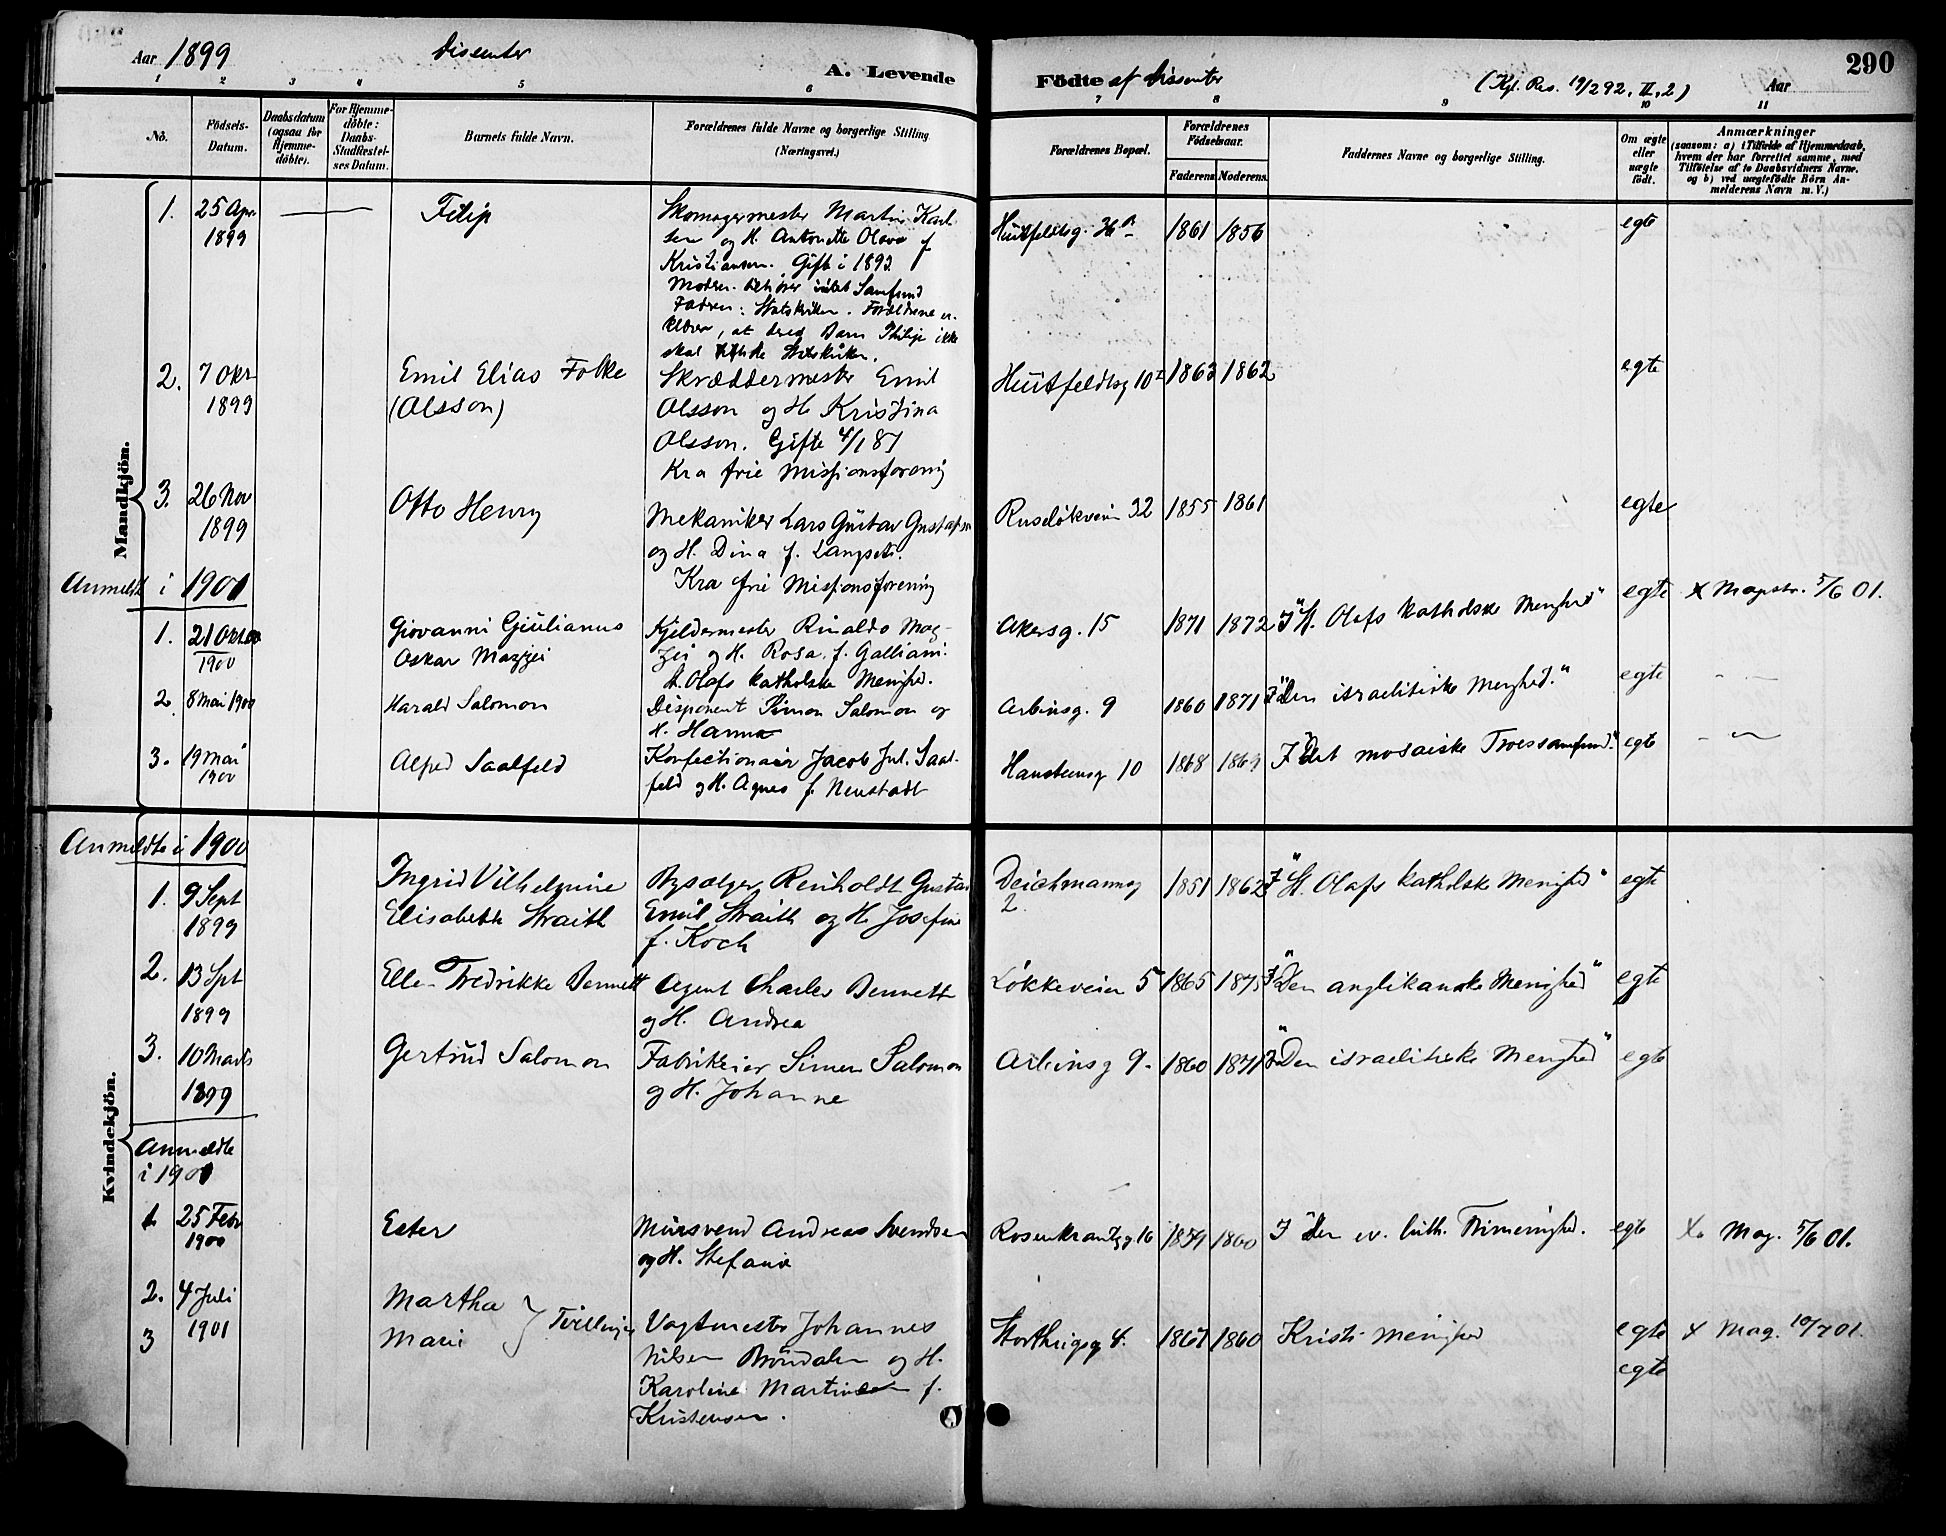 Aar 1899 Dissenter A. Levende Födte af Dissenter (Kgl. Res. 19/2 92, II, 2) Aar 290
1 2 3 4 5 6 7 8 9 10 11
No.
Födsels-Datum.
Daabsdatum (ogsaa for Hjemme-döbte).
For Hjemme-döbte: Daabs-Stadfæstel-ses Datum.
Barnets fulde Navn.
Forældrenes fulde Navne og borgerlige Stilling (Næringsvei.)
Forældrenes Bopæl.
Forældrenes Födselsaar.
Faderens Moderens.
Faddernes Navne og borgerlige Stilling.
Om ægte eller uægte födt.
Anmærkninger
(saasom: a) i Tilfælde af Hjemmedaab,
hvem der har forrettet samme, med
Tilföielse af to Daabsvidners Navne.
og b) ved uægtefödte Börn An-
melderens Navn m. V.)
Mandkjön.
1. 25 Apr 1899 Filip
Skomagermester Martin Karl-
sen og H. Antonette Olava f
Kristiansen. Gift i 1893
Moder. tilhører intet Samfund
Fadren: Statskirken. Forældrene er-
klærer, at dered Barn Philip ikke
skal tilhøre Statskirken.
Huitfeldtsg. 36 1861 1856 egte
2. 7 Okr 1899 Emil Elias Folke (Olsson)
Skræddermester Emil
Olsson og H. Kristina
Olsson. Gifte 4/1 87
Kra frie Missionsforening
Huitfeldtsg 10 1863 1862 egte
3. 26 Nov 1899 Otto Henry
Mekaniker Lars Gustav Gustafson
og H. Dina f. Langseth.
Kra frie Missionsforening
Ruseløkveien 32 1855 1861 egte
Anmeldt i 1901
1. 21 Oktbr 1900 Giovanni Giulianus
Oskar Mazzei
Kjeldermester Rinaldo Maz-
zei og H. Rosa, f. Galliani.
St. Olafs katholske Menighed.
Akersg. 15 1871 1872 I "St. Olafs katholske Menighed" egte x Magistr. 5/6 01.
2. 8 Mai 1900 Harald Salomon
Disponent Simon Salomon og
H. Hanna
Arbinsg. 9 1860 1871 I "den israelitiske Menighed." egte - " -
3. 19 Mai 1900 Alfred Saalfeld
Konfectionær Jacob Jul. Saal-
feld og H. Agnes f. Neustadt
Hansteensg 10 1868 1869 I "det mosaiske Troessamfund." egte - " -
Kvindekjön.
Anmeldte i 1900
1. 9 Sept 1899 Ingrid Vilhelmine
Elisabeth Straith
Bysælger Reinholdt Gustav
Emil Straith og H. Josefine
f. Koch
Deichmannsg 2. 1851 1862 I "St. Olafs katholske Menighed" egte
2. 13 Spt 1899 Ellen Fredrikke Bennett
Agent Charles Bennett
og H. Andrea
Løkkeveien 5 1865 1875 I "Den anglikanske Menighed" egte
3. 10 Marts 1899 Gertrud Salomon
Fabrikeier Simon Salomon
og H. Johanne
Arbinsg 9. 1860 1871 I "Den israelitiske Menighed" egte
Anmeldte
i 1901
1. 25 Febr 1900 Ester
Mursvend Andreas Svendsen
og H. Stefanie
Rosenkrantzg 16 1859 1860 I den ev. luth. Frimenighed. egte x. Mag. 5/6 01.
2. 4 Juli 1901 Martha
3 Marie } Tvillinger
Vagtmester Johannes
Nilsen Brøndalen og H.
Karoline Martinea f.
Kristensen.
Storthingsg 4. 1867 1860 Kristi Menighed egte x Mag. 10/7 01.
egte